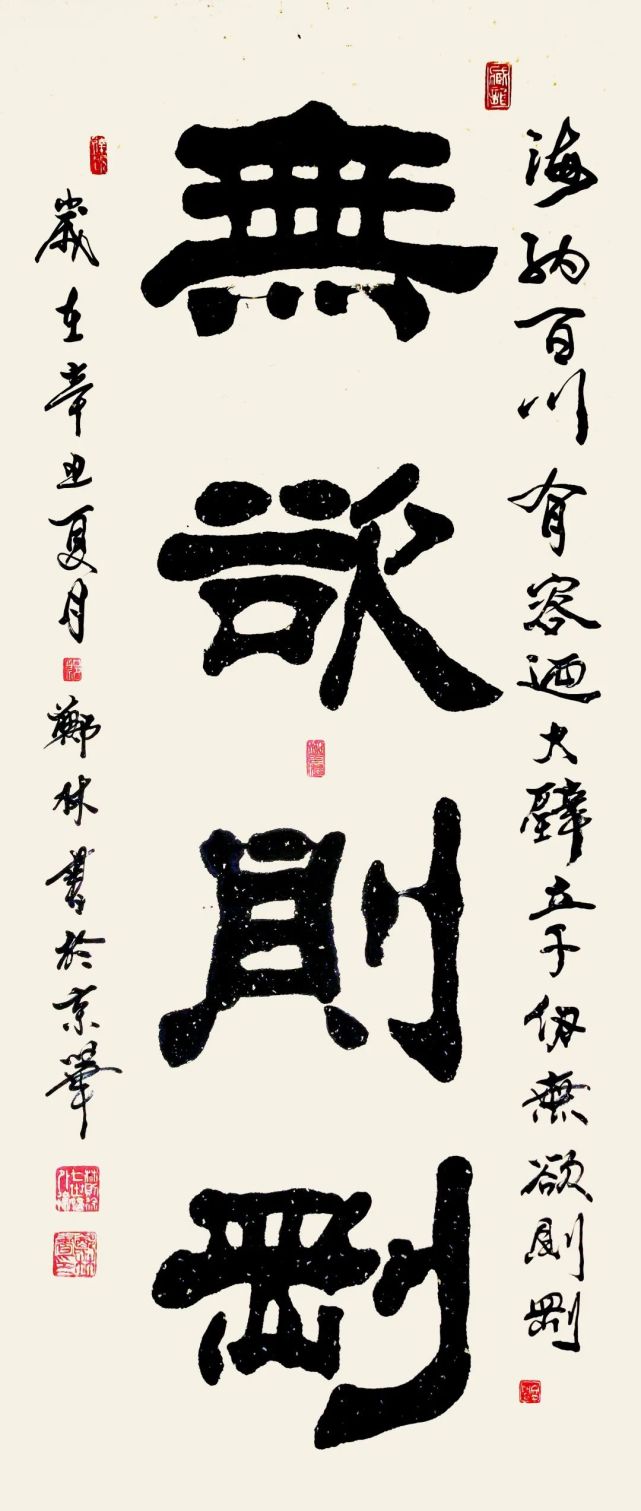 海納百川有容迺大壁立千仞無欲則剛
無欲則剛
歲在辛丑夏月鄭林書於京華